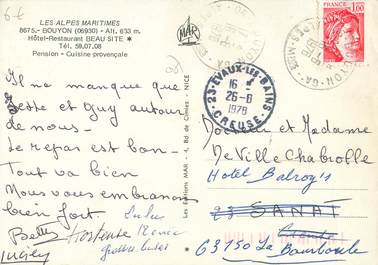 6 €
LES ALPES MARITIMES
8675.- BOUYON (06930) - Alt. 633 m.
Hôtel-Restaurant BEAU SITE *
Tél. 59.07.08
Pension - Cuisine provençale
MAR
Les Editions MAR - 4, Bd de Cimiez - NICE
1,00
23-EVAUX-LES-BAINS
16 H
26-8
1978
CREUSE
Il ne manque que
Zette et Guy autour
de nous-
Le repas est bon-
Tout va bien
Nous vous embrassons
bien fort
Lulu
Betty Hortense
Lucily
Docteur et Madame
De Ville Chabrolle
Hotel Balroy's
23 SANAT
63150 La
Bourboule